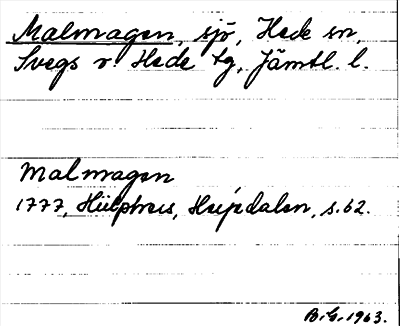 Malmagen, sjö, Hede sn,
Svegs o. Hede tg, Jämtl. l.
Malmagen
1777, Hülphers, Herjedalen, s. 62.
B.G. 1963.